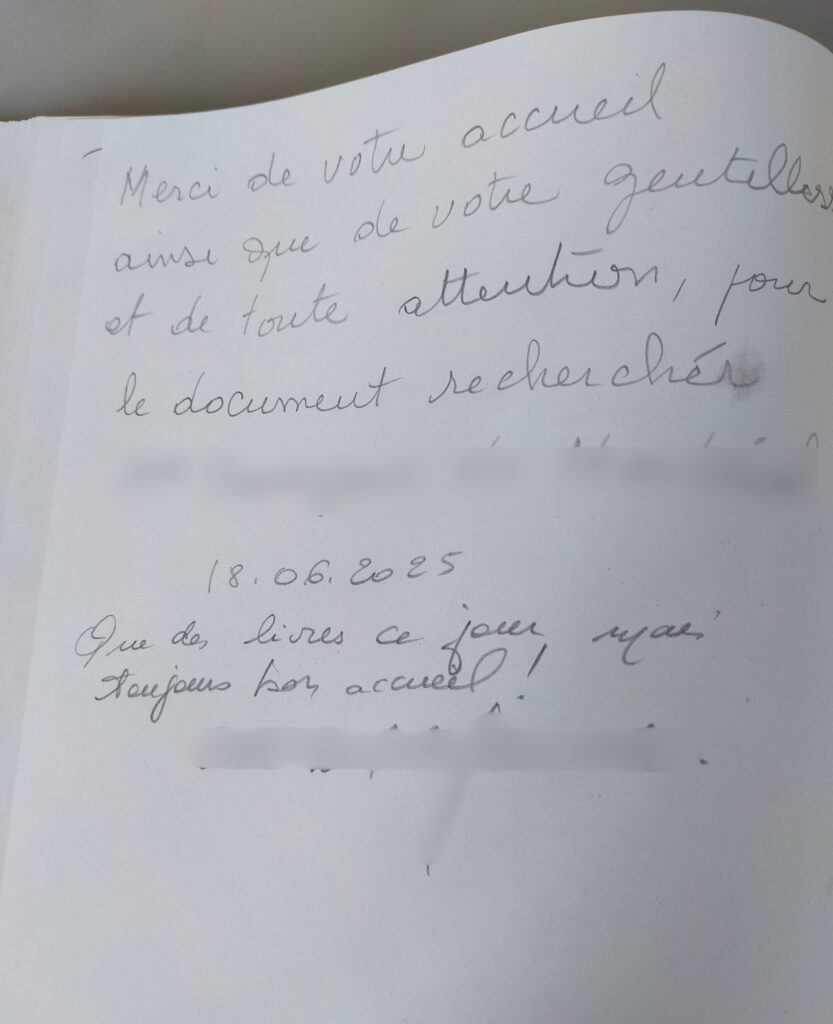 Merci de votre accueil
ainsi que de votre gentilless
et de toute attention, pour
le document recherchér
18.06.2025
Que des livres ce jour, mais
toujours bon accueil !